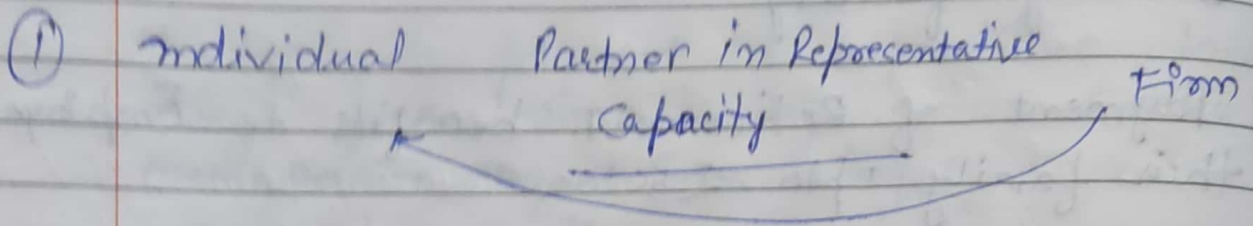 ① Individual Partner in Representative Firm
Capacity